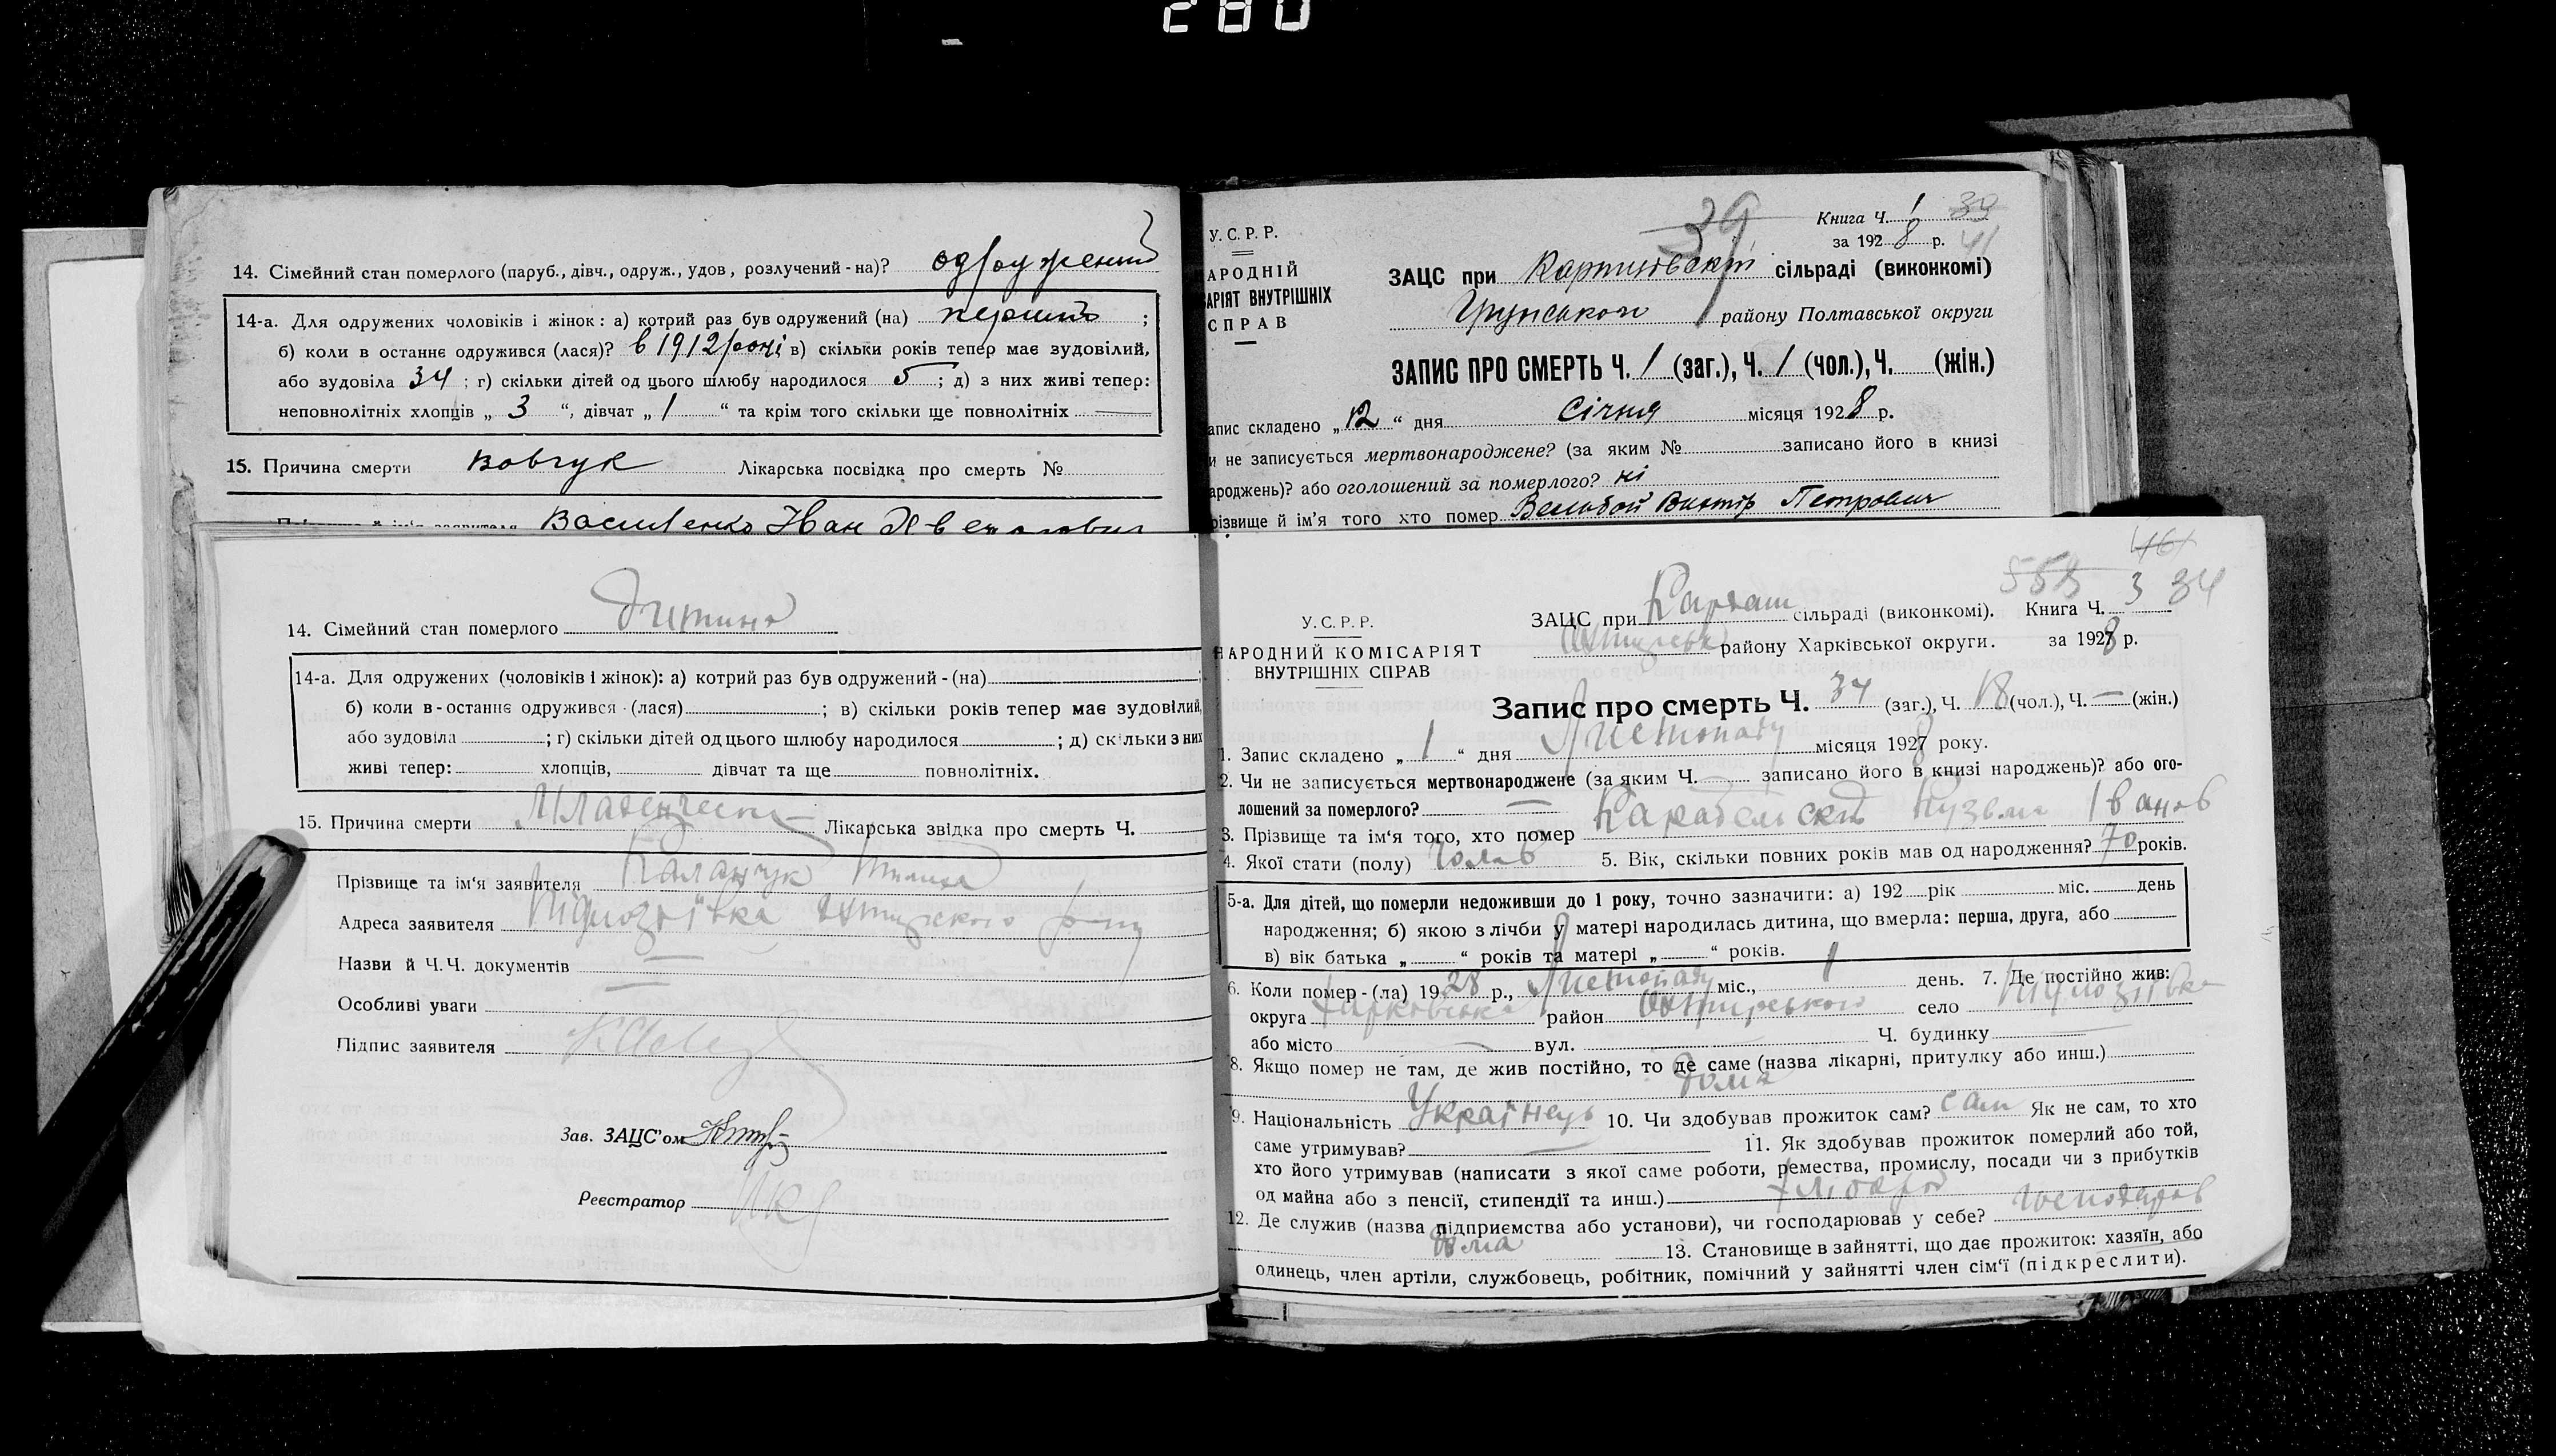 280
14. Сімейний стан померлого (паруб., дівч., одруж., удов, розлучений-на)? одружений
14-а. Для одружених чоловіків і жінок: а) котрий раз був одружений (на) перший ;
б) коли в останнє одружився (лася)? в 1912 році в) скільки років тепер має зудовілий,
або зудовіла 34 ; г) скільки дітей од цього шлюбу народилося 5 ; д) з них живі тепер:
неповнолітніх хлопців „ 3 “, дівчат „ 1 “ та крім того скільки ще повнолітніх —
15. Причина смерти вовчук Лікарська посвідка про смерть №
Василенко Іван
39
Книга Ч. 1 39
за 1928 р. 41
У. С. Р. Р.
АРОДНІЙ
АРІЯТ ВНУТРІШНІХ
СПРАВ
ЗАЦС при сільраді (виконкомі)
Грунського району Полтавської округи
ЗАПИС ПРО СМЕРТЬ Ч. 1 (заг.), Ч. 1 (чол.), Ч. (жін.)
апис складено „ 12 “ дня Січня місяця 1928 р.
и не записується мертвонароджене? (за яким № записано його в книзі
ароджень)? або оголошений за померлого? ні
різвище й ім’я того хто помер Петрович
14. Сімейний стан померлого Дитина
14-а. Для одружених (чоловіків і жінок): а) котрий раз був одружений-(на) ;
б) коли в-останнє одружився-(лася) ; в) скільки років тепер має зудовілий,
або зудовіла ; г) скільки дітей од цього шлюбу народилося ; д) скільки з них
живі тепер: хлопців, дівчат та ще повнолітніх.
15. Причина смерти Лікарська звідка про смерть Ч.
Прізвище та ім‘я заявителя
Адреса заявителя
Назви й Ч.Ч. документів —
Особливі уваги —
Підпис заявителя
Зав. ЗАЦС’ом
Реєстратор
558 161
34
ЗАЦС при сільраді (виконкомі). Книга Ч. 3
району Харківської округи. за 1928 р.
У. С. Р. Р.
НАРОДНИЙ КОМІСАРІЯТ
ВНУТРІШНІХ СПРАВ
Запис про смерть Ч. 34 (заг.), Ч. 18 (чол.), Ч. — (жін.)
1. Запис складено „ 1 “ дня Листопаду місяця 1928 року.
2. Чи не записується мертвонароджене (за яким Ч. записано його в книзі народжень)? або ого-
лошений за померлого? —
3. Прізвище та ім‘я того, хто помер Кузьма Іванов
4. Якої стати (полу) Чолов 5. Вік, скільки повних років мав од народження? 70 років.
5-а. Для дітей, що померли недоживши до 1 року, точно зазначити: а) 192 рік міс. день
народження; б) якою з лічби у матері народилась дитина, що вмерла: перша, друга, або
в) вік батька „ “ років та матері „ “ років.
6. Коли помер-(ла) 1928 р., Листопаду міс., 1 день. 7. Де постійно жив:
округа Харківська район Охтирського село
або місто — вул. — Ч. будинку —
8. Якщо помер не там, де жив постійно, то де саме (назва лікарні, притулку або инш.)
дома
9. Національність Українець 10. Чи здобував прожиток сам? сам Як не сам, то хто
саме утримував? — 11. Як здобував прожиток померлий або той,
хто його утримував (написати з якої саме роботи, ремества, промислу, посади чи з прибутків
од майна або з пенсії, стипендії та инш.) Хлібороб
12. Де служив (назва підприємства або установи), чи господарював у себе? господарюв
дома 13. Становище в зайнятті, що дає прожиток: хазяїн, або
одинець, член артіли, службовець, робітник, помічний у зайнятті член сім‘ї (підкреслити).